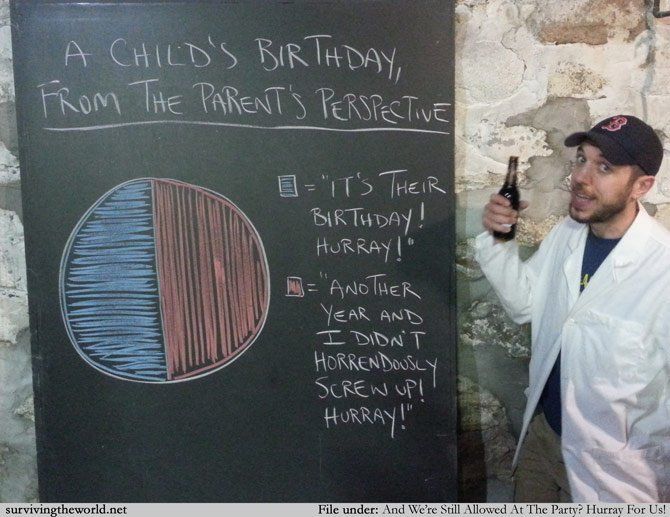 A CHILD'S BIRTHDAY,
FROM THE PARENT'S PERSPECTIVE
= "IT'S THEIR
BIRTHDAY!
HURRAY!"
= "ANOTHER
YEAR AND
I DIDN'T
HORRENDOUSLY
SCREW UP!
HURRAY!"
B
survivingtheworld.net
File under: And We're Still Allowed At The Party? Hurray For Us!